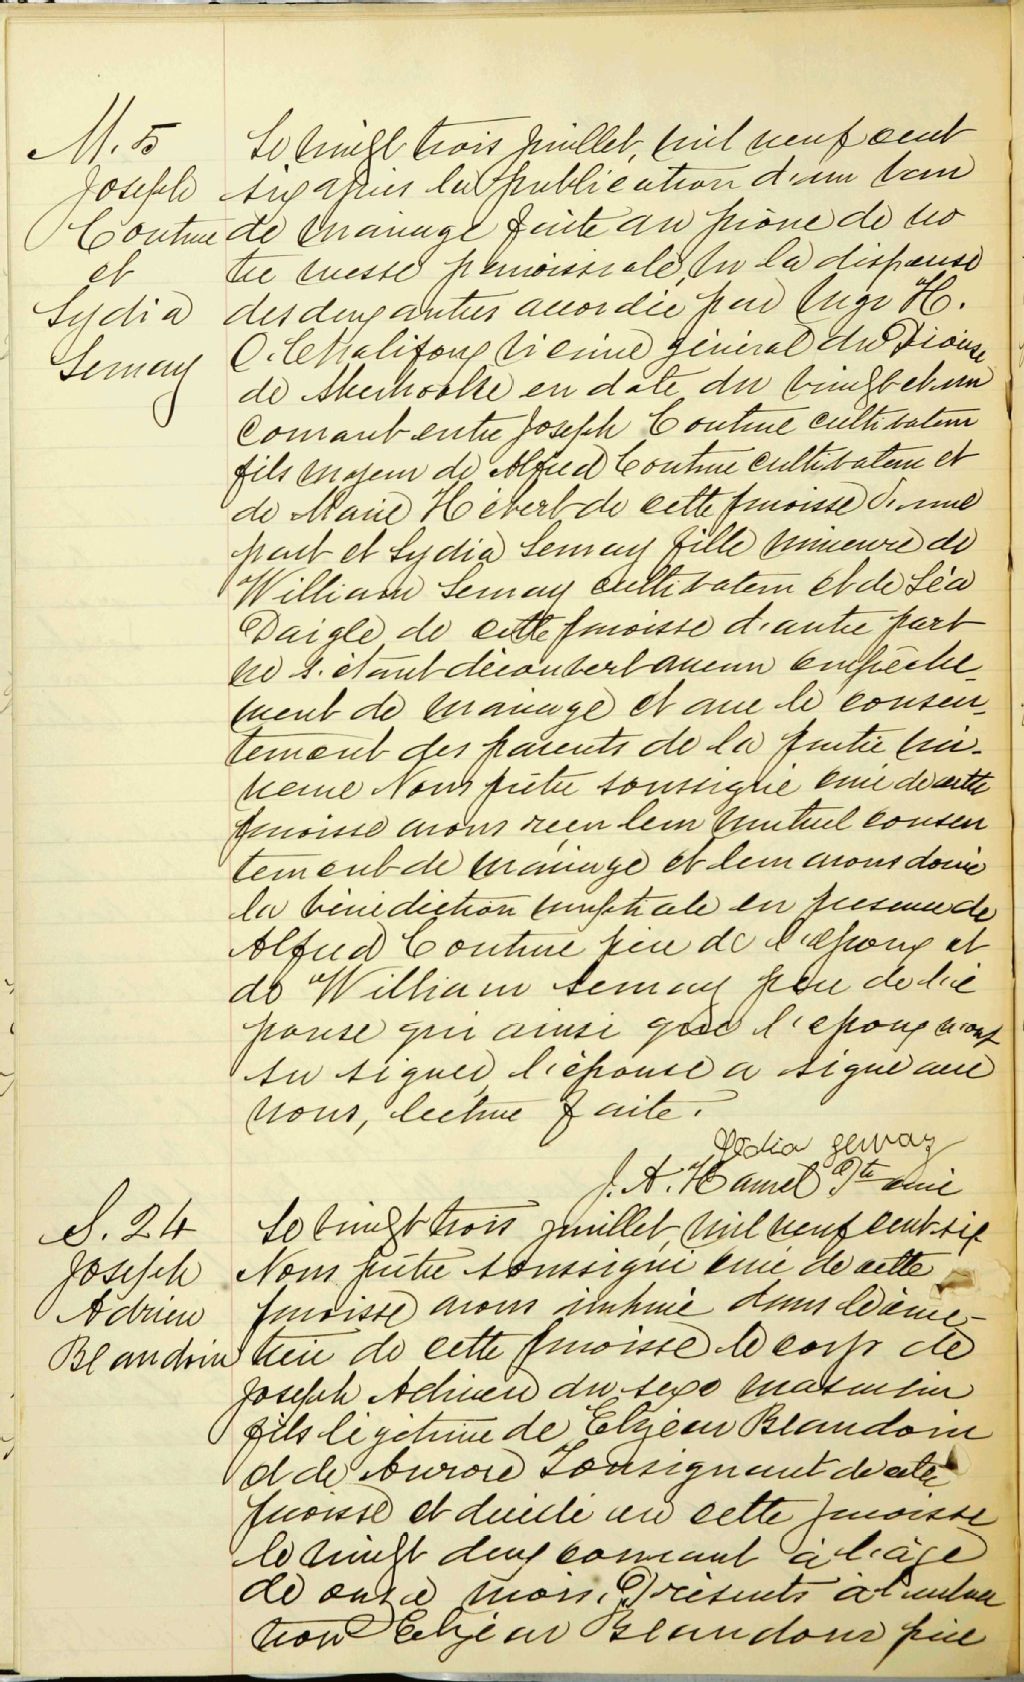 M. 5
Joseph
Couture
et
Lydia
Lemay
Le vingt trois juillet, mil neuf cent
six après la publication d'un ban
de mariage faite au prône de no
tre messe paroissiale, vu la dispense
des deux autres accordée par Mgr H.
O. Chalifoux Vicaire général du Diocèse
de Sherbrooke en date du vingt et un
courant entre Joseph Couture cultivateur
fils majeur de Alfred Couture cultivateur et
de Marie Hébert de cette paroisse d'une
part et Lydia Lemay fille mineure de
William Lemay cultivateur et de Léa
Daigle de cette paroisse d'autre part
ne s'étant découvert aucun empêche-
ment de mariage et avec le consen-
tement des parents de la partie mi-
neure Nous prêtre soussigné curé de cette
paroisse avons reçu leur mutuel consen
tement de mariage et leur avons donné
la bénédiction nuptiale en présence de
Alfred Couture père de l'époux et
de William Lemay père de l'é
pouse qui ainsi que l'époux n'ont
su signer, l'épouse a signé avec
nous, lecture faite.
Lydia Lemay
J. A. Hamel Ptre curé
S. 24
Joseph
Adrien
Beaudoin
Le vingt trois juillet, mil neuf cent six
Nous prêtre soussigné curé de cette
paroisse avons inhumé dans le cime-
tière de cette paroisse le corps de
Joseph Adrien du sexe masculin
fils légitime de Elzéar Beaudoin
et de Aurore Lonsignant de cette
paroisse et décédé en cette paroisse
le vingt deux courant à l'âge
de onze mois. Présents à l'inhuma
tion Elzéar Beaudoin père